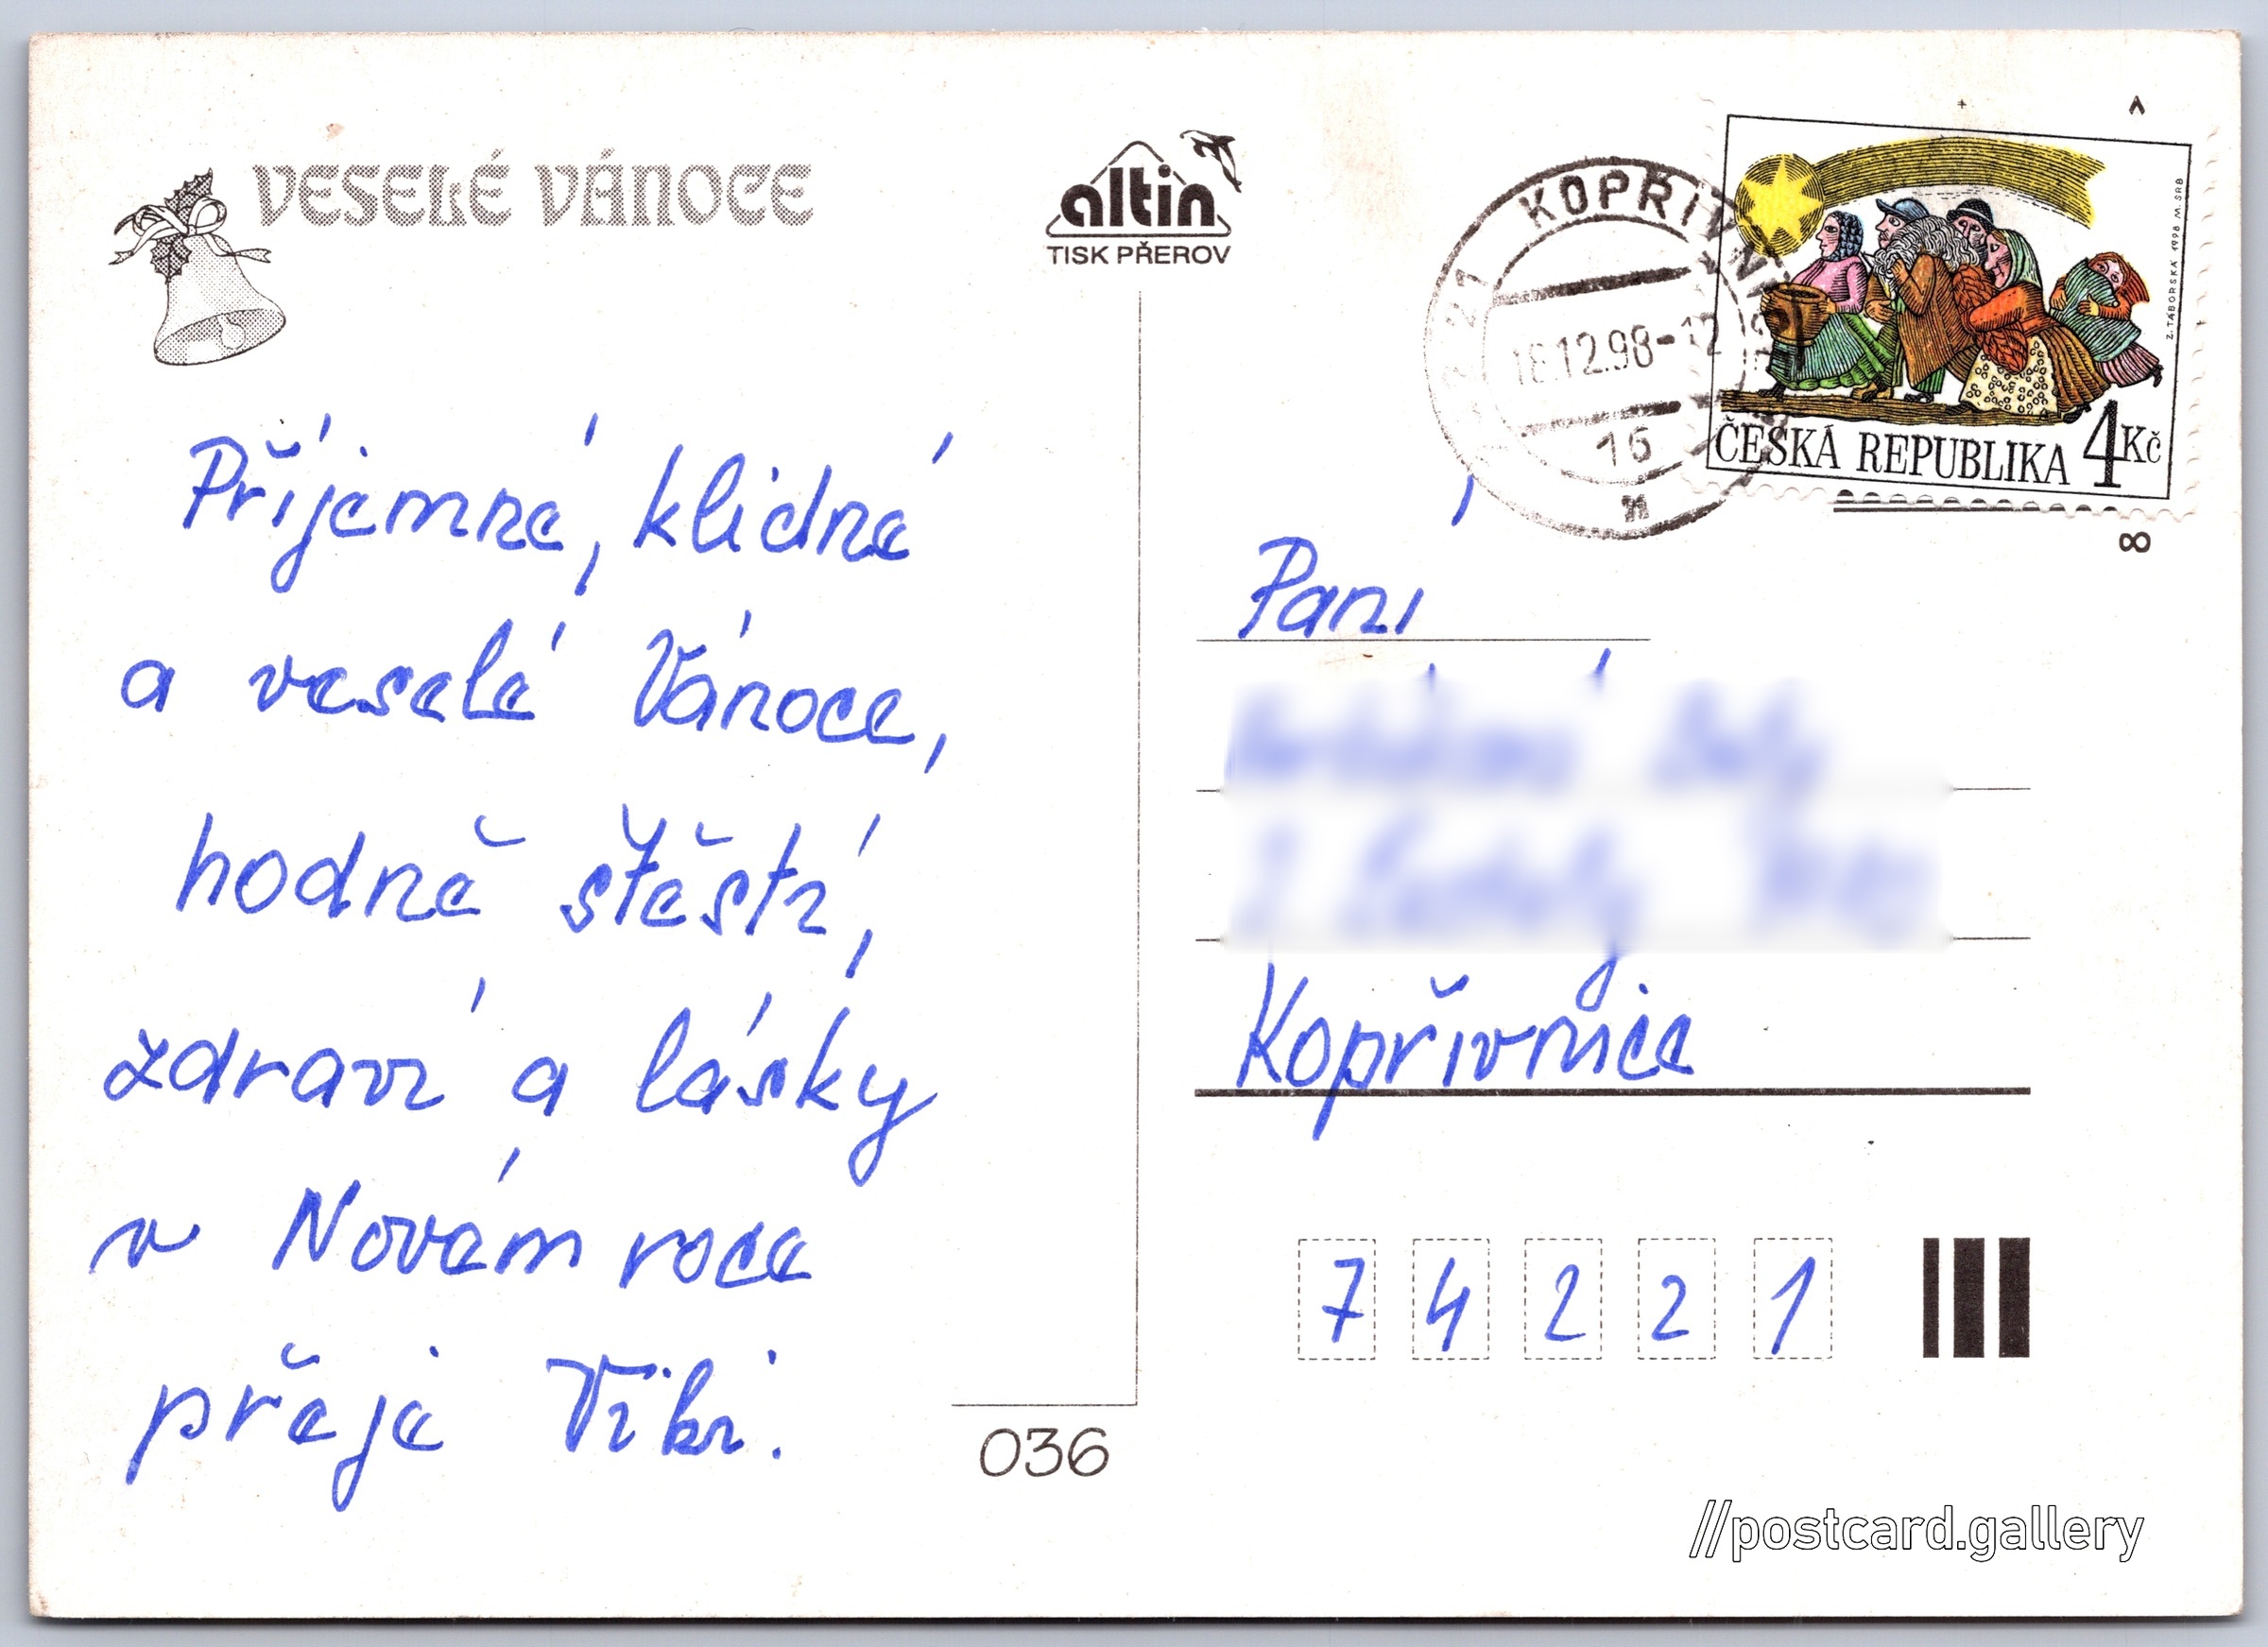 VESELÉ VÁNOCE
altin
TISK PŘEROV
Příjemné, klidné
a veselé Vánoce,
hodně štěstí,
zdraví a lásky
v Novém roce
přeje Viki.
036
KOPŘIV
18.12.98-12
16
Z. TÁBORSKÁ 1998 M. SRB
ČESKÁ REPUBLIKA 4Kč
8
Paní
Kopřivnice
7 4 2 2 1
//postcard.gallery